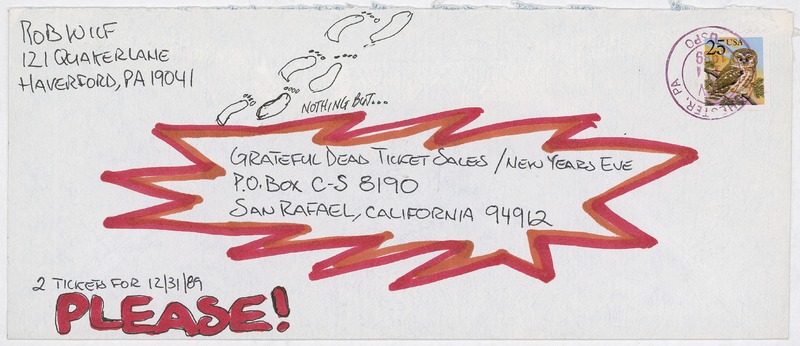 ROB WILF
121 QUAKER LANE
HAVERFORD, PA 19041
NOTHING BUT...
25 USA
CHESTER, PA
USPO
GRATEFUL DEAD TICKET SALES / NEW YEARS EVE
P.O. BOX C-S 8190
SAN RAFAEL, CALIFORNIA 94912
2 TICKETS FOR 12/31/89
PLEASE!